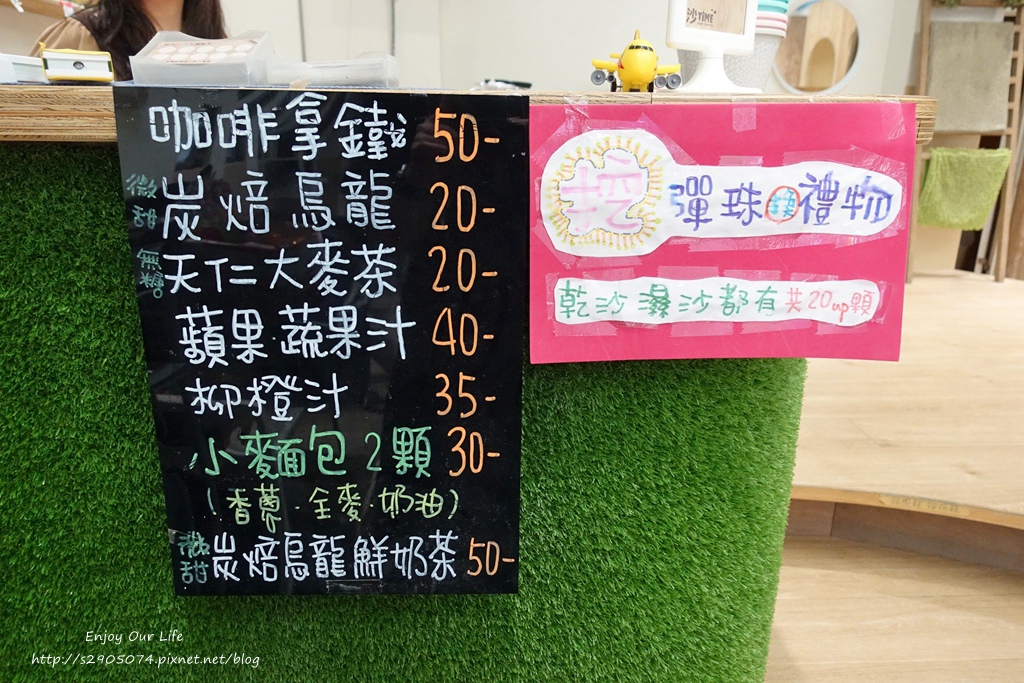 咖啡拿鐵 50-
微甜 炭焙烏龍 20-
無糖 天仁大麥茶 20-
蘋果蔬果汁 40-
柳橙汁 35-
小麥麵包2顆 30-
(香蔥.全麥.奶油)
微甜 炭焙烏龍鮮奶茶 50-
沙TIME
挖彈珠換禮物
乾沙濕沙都有共20up顆
Enjoy Our Life
http://s2905074.pixnet.net/blog